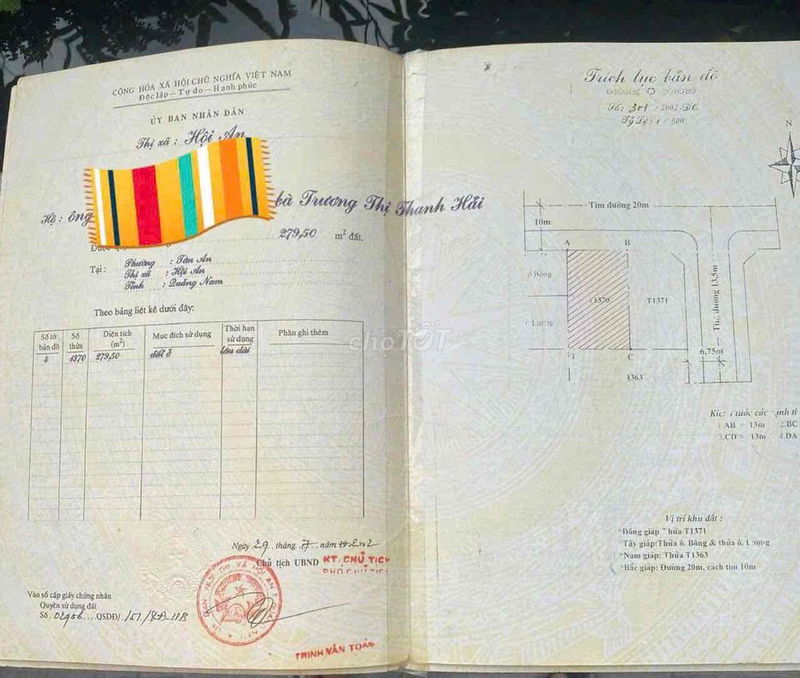 CỘNG HÒA XÃ HỘI CHỦ NGHĨA VIỆT NAM
Độc lập - Tự do - Hạnh phúc
ỦY BAN NHÂN DÂN
Thị xã: Hội An
Hộ: ông
bà Trương Thị Thanh Hải
279,50 m² đất.
Tại: Phường : Tân An
Thị xã : Hội An
Tỉnh : Quảng Nam
Theo bảng liệt kê dưới đây:
Số tờ bản đồ
Số thửa
Diện tích (m²)
Mục đích sử dụng
Thời hạn sử dụng
Phần ghi thêm
1370
279,50
đất ở
lâu dài
Ngày 29 tháng
Chủ tịch UBND
KT. CHỦ TỊCH
PHÓ CHỦ TỊCH
Vào sổ cấp giấy chứng nhận
Quyền sử dụng đất
Số QSDĐ/
TRỊNH VĂN TOÀN
Trích lục bản đồ
Số: 301 / 2002-Đc
Tỷ Lệ: 1 / 500
N
Tim đường 20m
10m
A
B
ô Bông
T1370
T1371
Tim đường 13,5m
C
6,75m
T1363
AB = 13m
2.BC
3.CD = 13m
4.DA
Vị trí khu đất :
*Đông giáp Thửa T1371
*Tây giáp: Thửa ô. Bông & thửa ô. Lượng
*Nam giáp: Thửa T1363
*Bắc giáp: Đường 20m, cách tim 10m
choTỐT